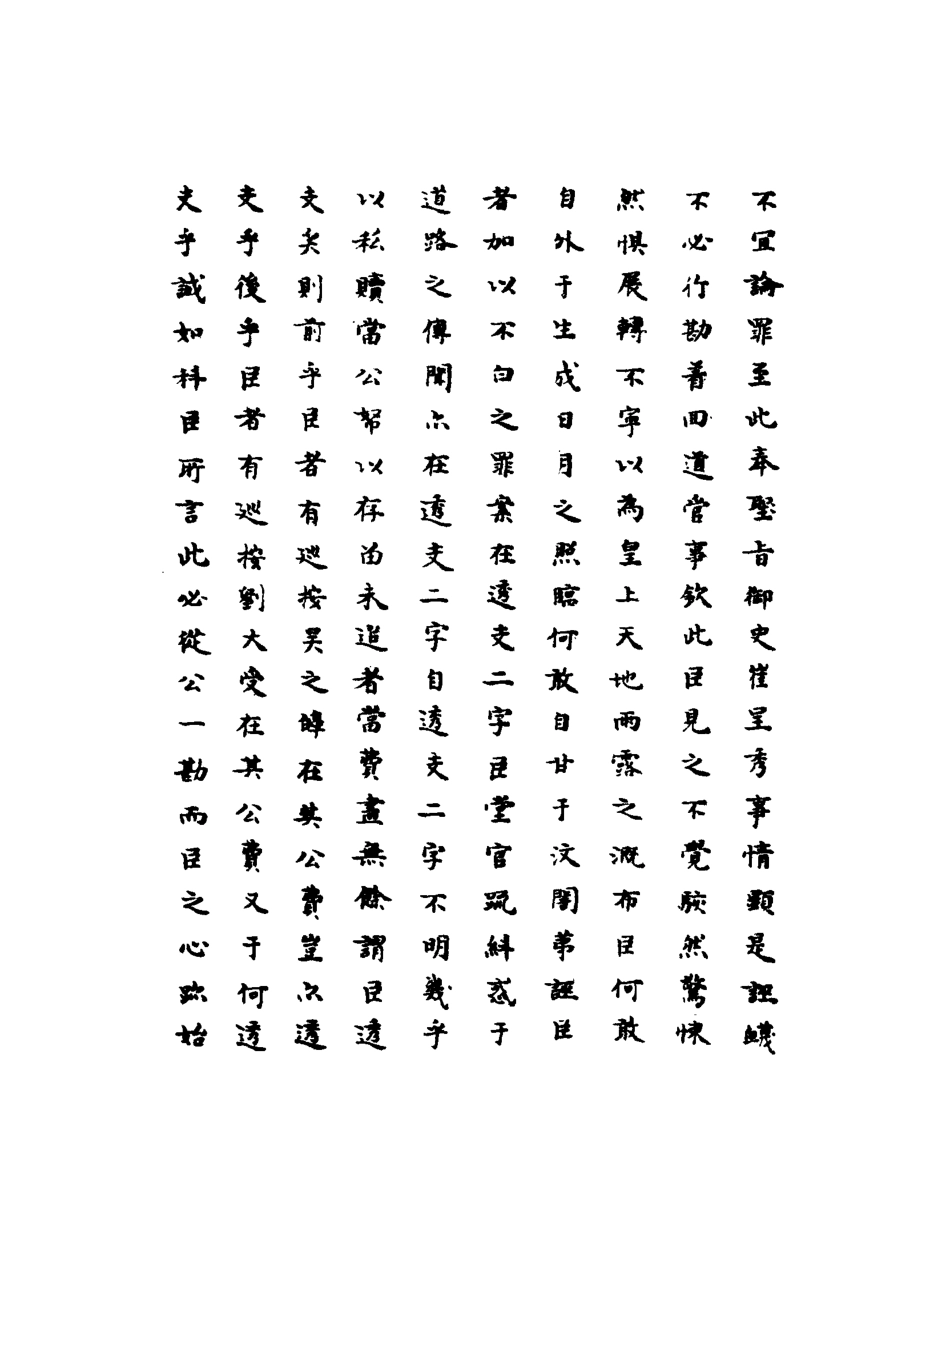 不宜論罪至此奉聖旨御史崔呈秀事情顯是誣衊
不必行勘着回道管事欽此臣見之不覺駭然驚悚
然惧展轉不寧以為皇上天地雨露之溉布臣何敢
自外于生成日月之照臨何敢自甘于汶闇苐誣臣
者加以不白之罪案在透支二字臣堂官疏糾惑于
道路之傳聞亦在透支二字自透支二字不明幾乎
以私贖當公帑以存畄未追者當費盡無餘謂臣透
支矣則前乎臣者有巡按吴之皡在其公費豈亦透
支乎後乎臣者有巡按劉大受在其公費又于何透
支乎誠如科臣所言此必從公一勘而臣之心跡始